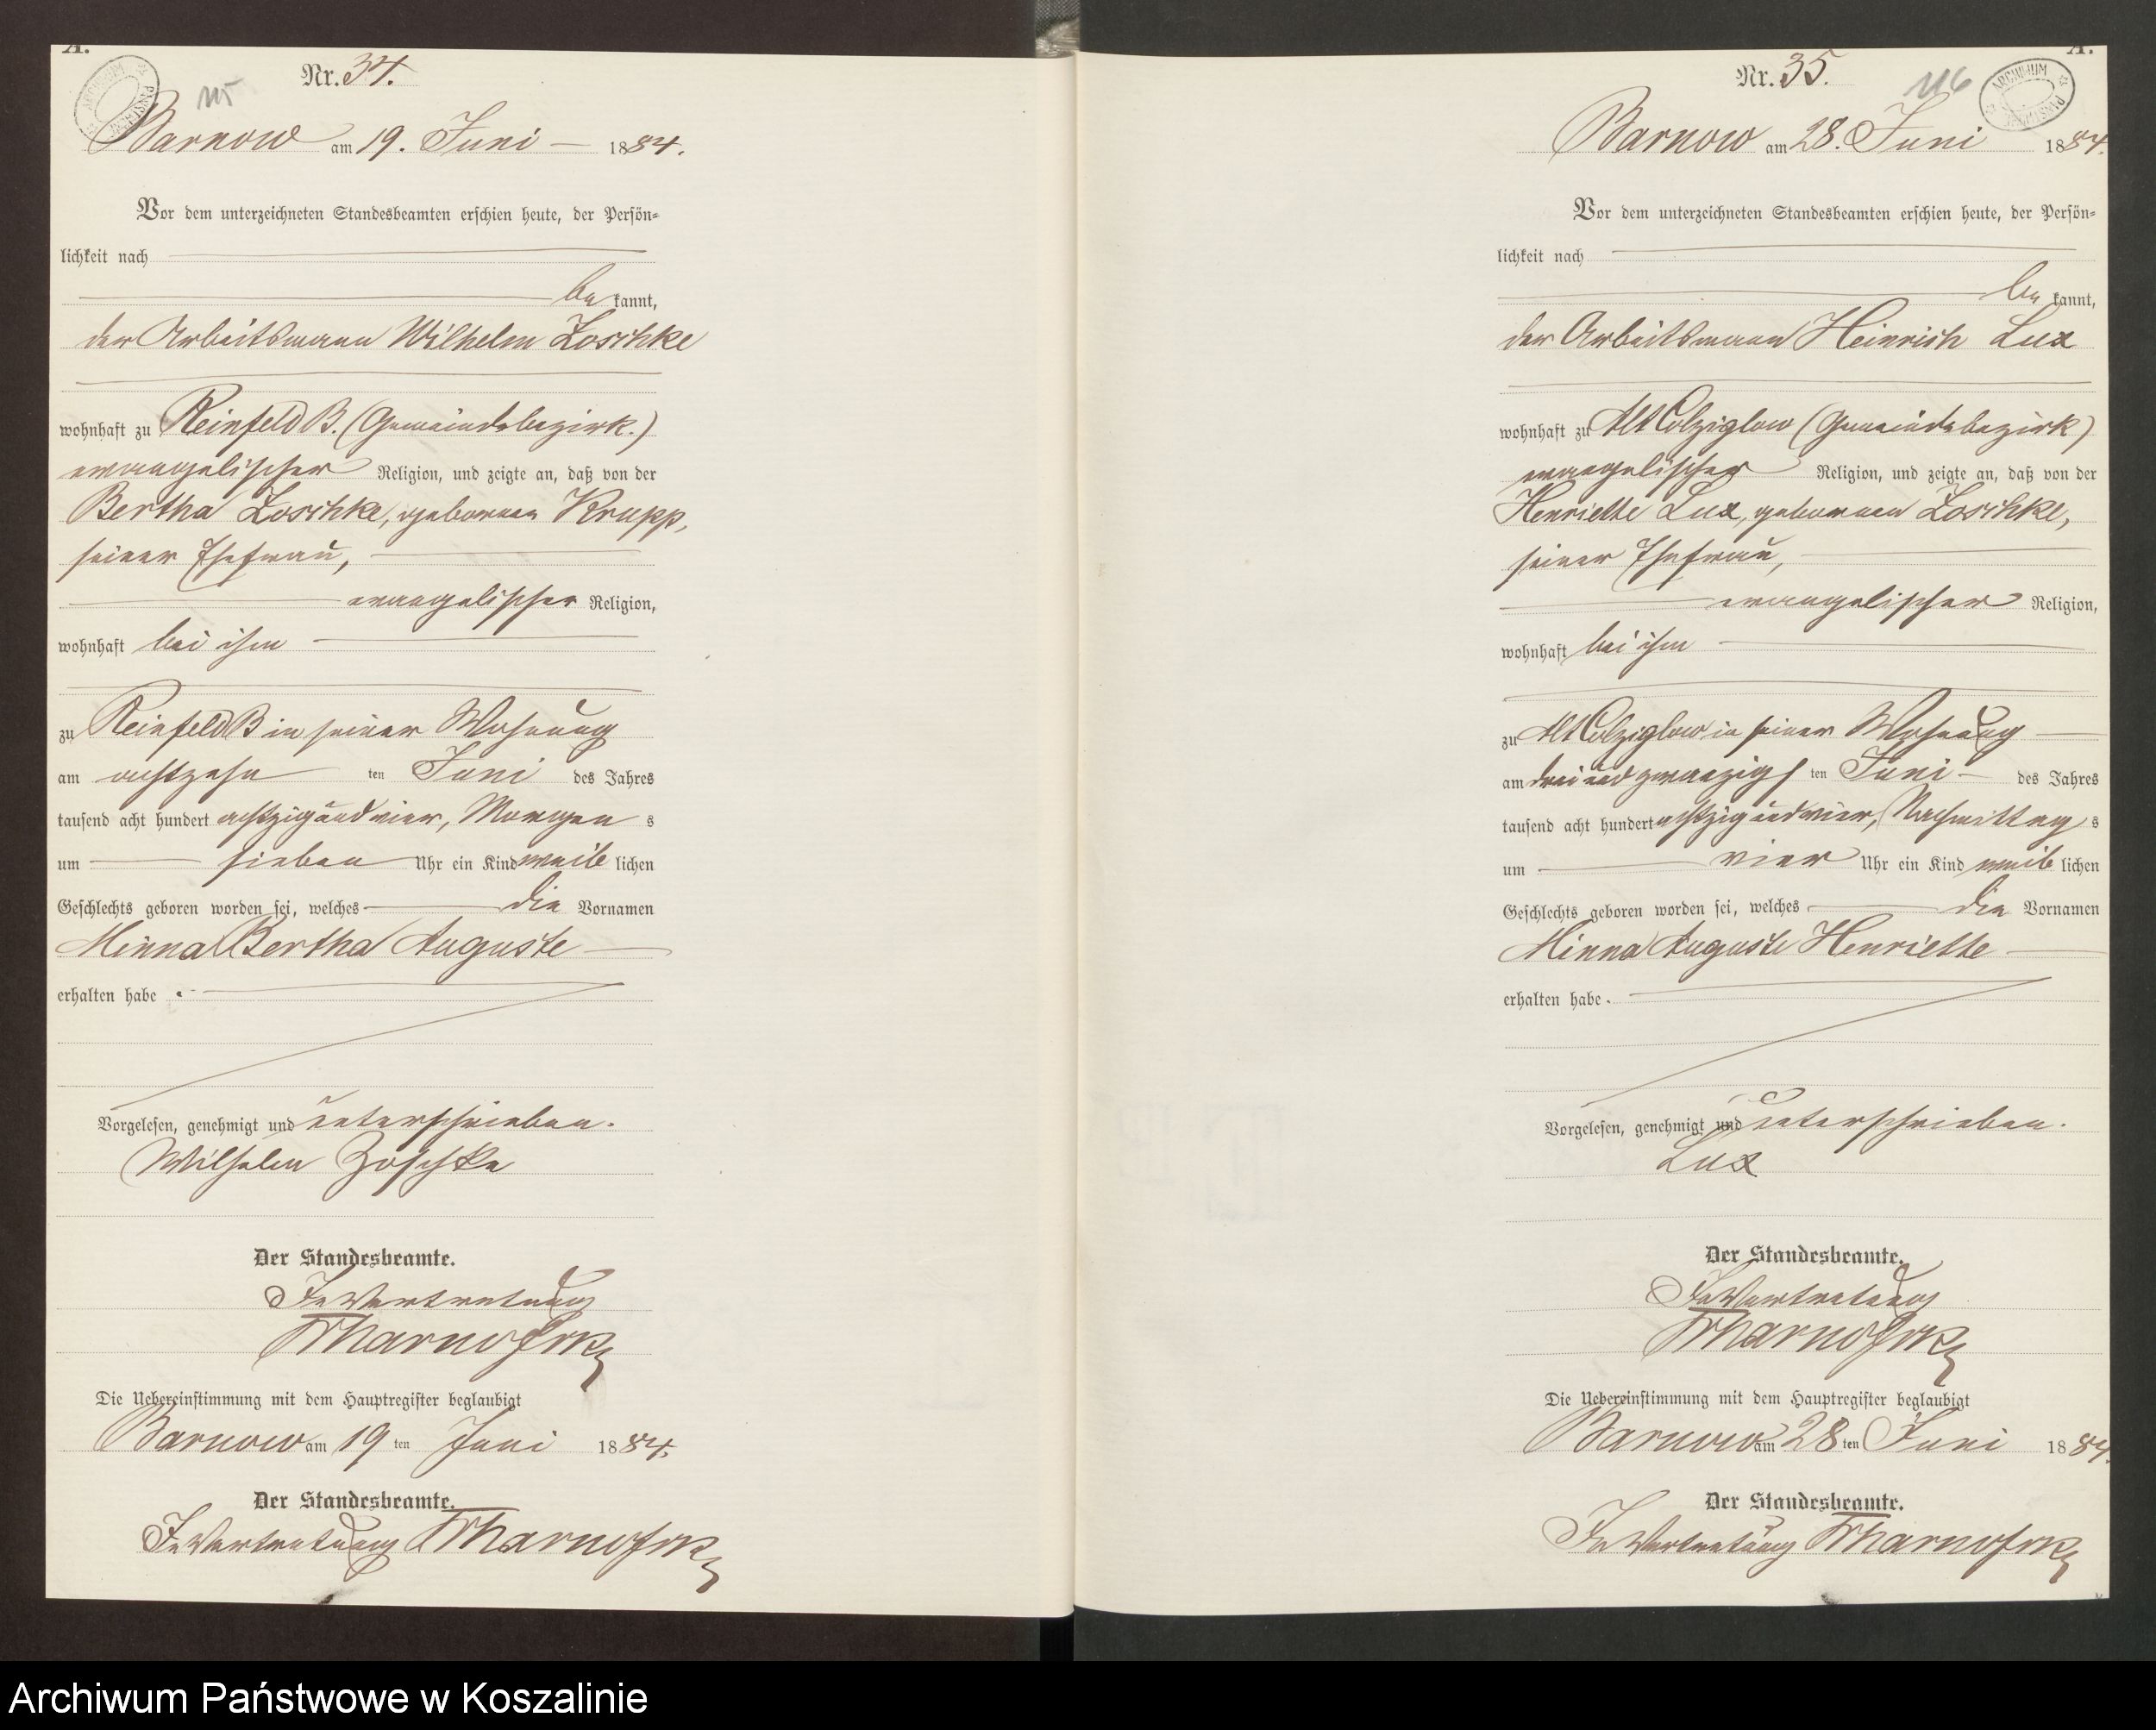 A.
Nr. 34.
115
Barnow am 19. Juni 1884.
Vor dem unterzeichneten Standesbeamten erschien heute, der Persön-
lichkeit nach
be kannt,
der Arbeitsmann Wilhelm Zoschke
wohnhaft zu Reinfeld B. (Gemeindebezirk.)
evangelischer Religion, und zeigte an, daß von der
Bertha Zoschke, geborenen Krupp,
seiner Ehefrau,
evangelischer Religion,
wohnhaft bei ihm
zu Reinfeld B in seiner Wohnung
am achtzehn ten Juni des Jahres
tausend acht hundert achtzig und vier, Morgen s
um sieben Uhr ein Kind weib lichen
Geschlechts geboren worden sei, welches die Vornamen
Minna Bertha Auguste
erhalten habe.
Vorgelesen, genehmigt und unterschrieben.
Wilhelm Zoschke
Der Standesbeamte.
In Vertretung
Die Uebereinstimmung mit dem Hauptregister beglaubigt
Barnow am 19 ten Juni 1884.
Der Standesbeamte.
In Vertretung
A.
Nr. 35.
116
ARCHIWUM
Barnow am 28. Juni 1884.
Vor dem unterzeichneten Standesbeamten erschien heute, der Persön-
lichkeit nach
be kannt,
der Arbeitsmann Heinrich Lux
wohnhaft zu Alt Colziglow (Gemeindebezirk)
evangelischer Religion, und zeigte an, daß von der
Henriette Lux, geborenen Zoschke,
seiner Ehefrau,
evangelischer Religion,
wohnhaft bei ihm
zu Alt Colziglow in seiner Wohnung
am drei und zwanzigs ten Juni des Jahres
tausend acht hundert achtzig und vier, Nachmittag s
um vier Uhr ein Kind weib lichen
Geschlechts geboren worden sei, welches die Vornamen
Minna Auguste Henriette
erhalten habe.
Vorgelesen, genehmigt und unterschrieben.
Lux
Der Standesbeamte.
In Vertretung
Die Uebereinstimmung mit dem Hauptregister beglaubigt
Barnow am 28 ten Juni 1884.
Der Standesbeamte.
In Vertretung
Archiwum Państwowe w Koszalinie